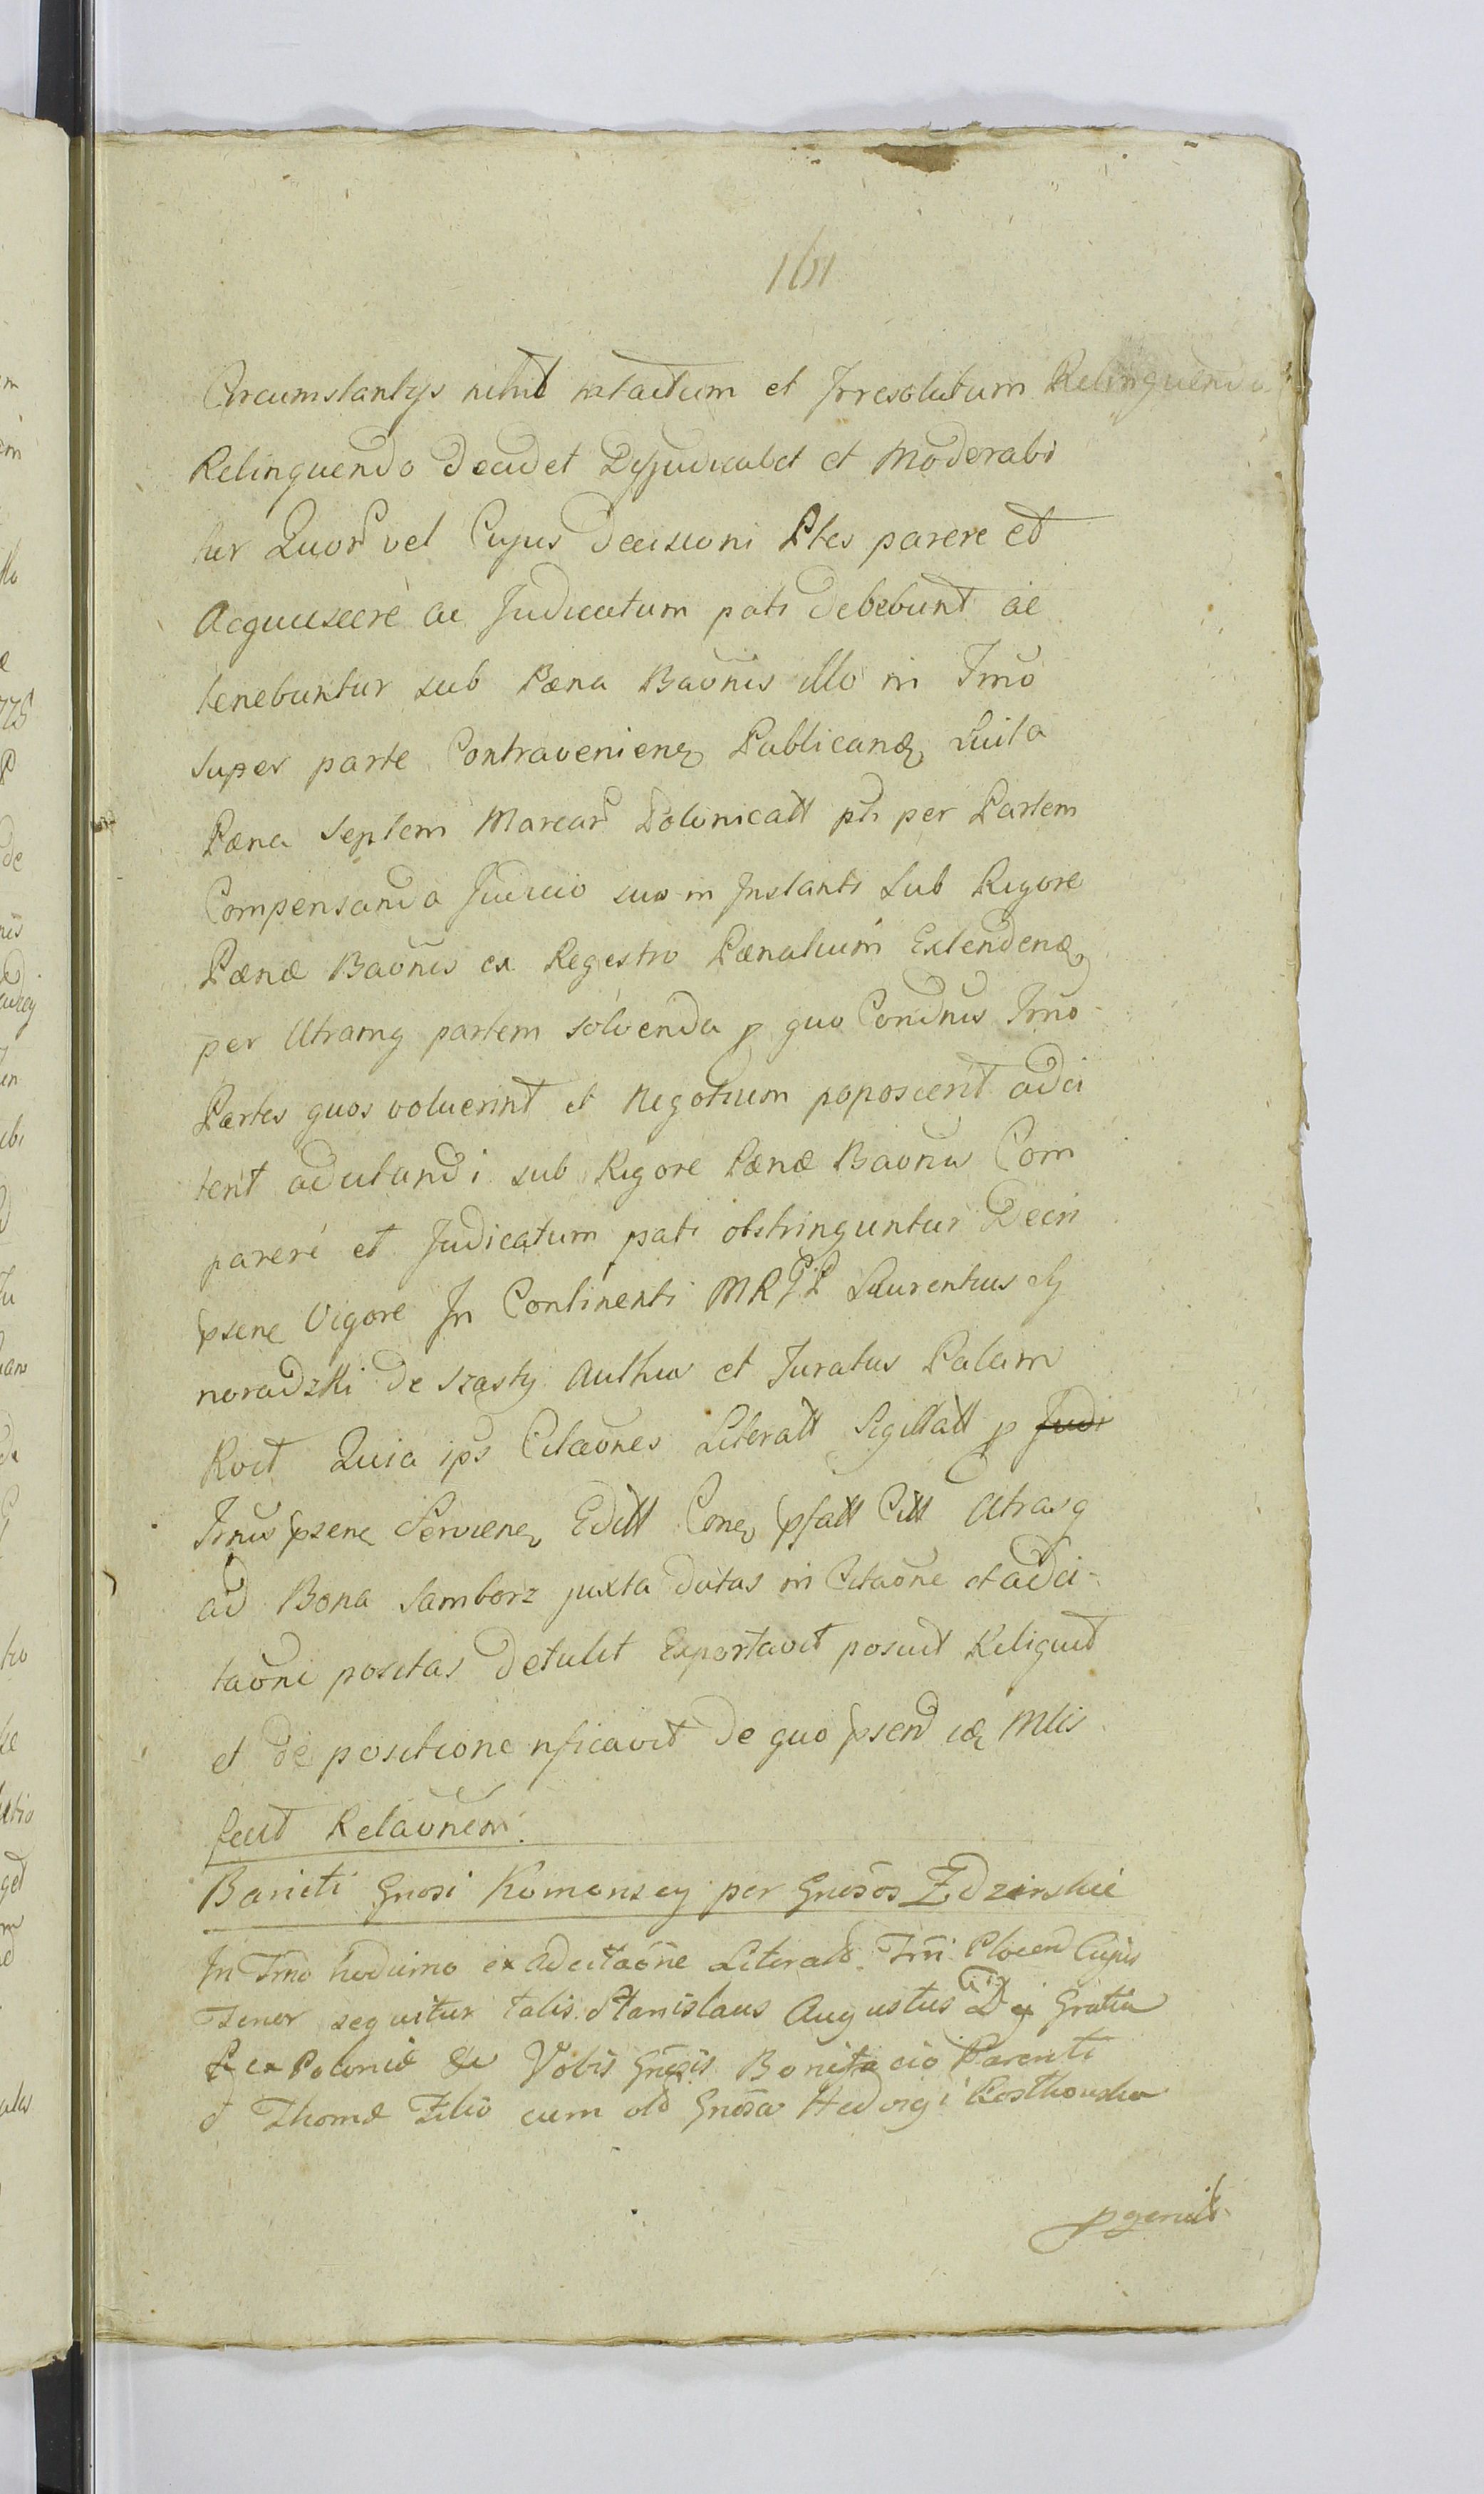 161
Circumstantijs nihil intactum et Irresolutum Relinquendo
Relinquendo Decidet Dijudicabit et Moderabi
tur Quor vel Cujus Decisioni Ptes parere et
Acquiescere ac Judicatum pati Debebunt ac
tenebuntur sub Pæna Baonis illo in Trno
super parte Contravenien Publicand Luita
Pæna Septem Marcar Polonicall pti per Partem
Compensanda Judicio suo in Instanti Sub Rigore
Pænæ Baonis ex Regestro Pænalium Extendenæ
per Utramq partem solvenda p quo Condnis Trno
Partes quos voluerint et Negotium poposcerit adci
tent adcitandi sub Rigore Pænæ Baonis Com
parere et Judicatum pati obstringuntur Decri
psene Vigore In Continenti MRGD Laurentius Cy
noradzki de Szasty Author et Juratus Palam
Rvit Quia ips Citaones Literatt Sigillatt p Judi
Trnis psene Serviene Editt Cone pfatt Citt Utrasq
ad Bona Samborz juxta datas in Citaone et adci-
taone positas Detulit Exportavit posuit Reliquit
et de positione nficavit De quo psend id Mlis
fecit Relaonem.
Baniti Gnosi Komonscy per Gnosos Zdzinskie
In Trno hodierno ex adcitaone Literali Trni Plocen Cujus
Tenor sequitur talis Stanislaus Augustus Dei Gratia
Rex Poloniæ &c Vobis Gnosis Bonifacio Parenti
& Thomæ Filio cum old Gnosa Hedvigi Rosthowska
pgenit